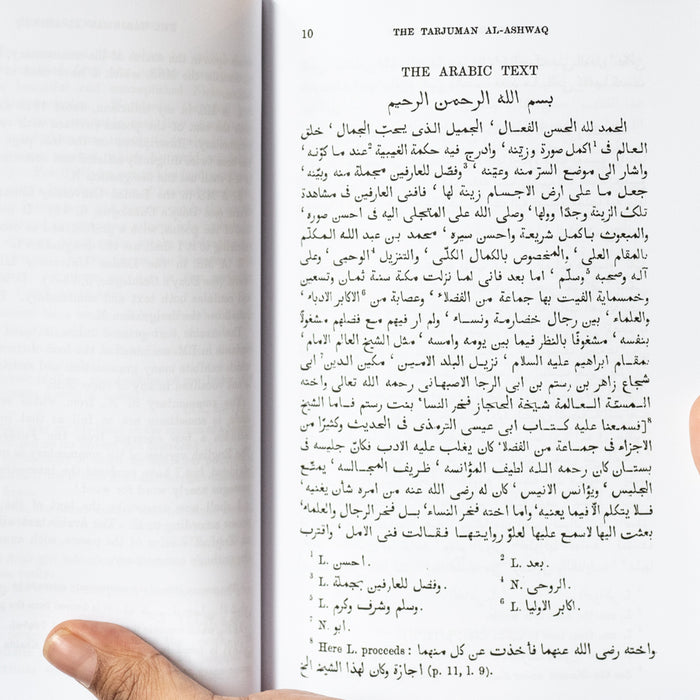 10
THE TARJUMAN AL-ASHWAQ
THE ARABIC TEXT
بسم الله الرحمن الرحيم
الحمد لله الحسن الفعال ، الجميل الذى يحبّ الجمال ، خلق
العالم فى ¹ اكمل صورة وزيّنه ، وادرج فيه حكمة الغيبية ² عند ما كوّنه ،
واشار الى موضع السرّ منه وعيّنه ، ³ وفصّل للعارفين مجملة منه وبيّنه ،
جعل ما على ارض الاجسام زينة لها ، فافنى العارفين فى مشاهدة
تلك الزينة وجدًا وولها ، وصلى الله على المتجلى اليه فى احسن صوره ،
والمبعوث باكمل شريعة واحسن سيره ، محمد بن عبد الله المكلّم
بالمقام العلى ، والمخصوص بالكمال الكلّى ، والتنزيل ⁴ الوحيى ، وعلى
آله وصحبه ⁵ وسلّم ، اما بعد فانى لما نزلت مكة سنة ثمان وتسعين
وخمسماية الفيت بها جماعة من الفضلاء ، وعصابة من ⁶ الاكابر الادباء ،
والعلماء ، بين رجال ونساء ، ولم ار فيهم مع فضلهم مشغولًا
بنفسه ، مشغوفًا بالنظر فيما بين يومه وامسه ، مثل الشيخ العالم الامام ،
بمقام ابراهيم عليه السلام ، نزيل البلد الامين ، مكين الدين ⁷ ابى
شجاع زاهر بن رستم بن ابى الرجا الاصبهانى رحمه الله تعالى واخته
المسنّة العالمة شيخة الحجاز فخر النساء بنت رستم فاما الشيخ
⁸ [فسمعنا عليه كتاب ابى عيسى الترمذى فى الحديث وكثيرًا من
الاجزاء فى جماعة من الفضلاء كان يغلب عليه الادب فكانّ جليسه فى
بستان كان رحمه الله لطيف المؤانسه ، ظريف المجالسه ، يمتّع
الجليس ، ويؤانس الانيس ، كان له رضى الله عنه من امره شأن يغنيه ،
فلا يتكلم الّا فيما يعنيه ، واما اخته فخر النساء ، بل فخر الرجال والعلماء ،
بعثت اليها لاسمع عليها لعلوّ روايتها ، فقالت فنى الامل ، واقترب
¹ L. احسن.
² L. بعد.
³ L. وفضل للعارفين بجملة.
⁴ N. الروحى.
⁵ L. وسلم وشرف وكرم.
⁶ L. اكابر الاوليا.
⁷ N. ابو.
⁸ Here L. proceeds : واخته رضى الله عنهما فأخذت عن كل منهما
اجازة وكان لهذا الشيخ الخ (p. 11, l. 9).